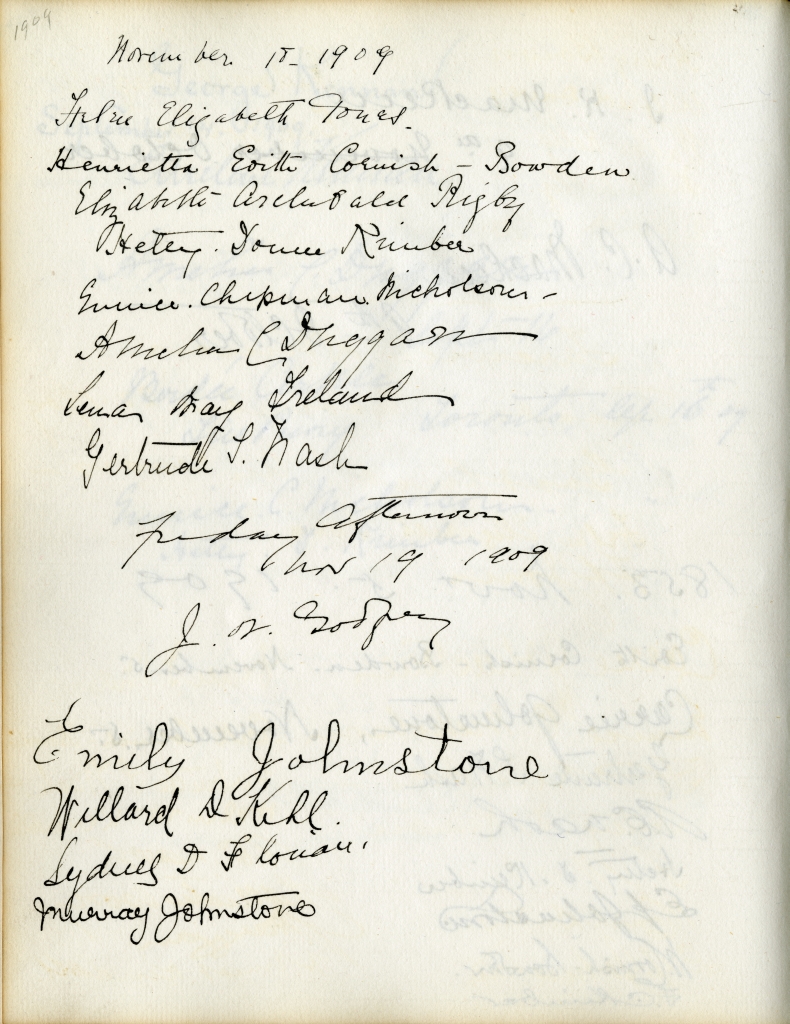 1909
21.
November 18 - 1909
Elizabeth Jones.
Henrietta Edith Cornish - Bowden
Elizabeth Archibald Rigby
Hetty. Donne Rimber
Eunice. Chapman. Nicholson -
Amelia C Duggan
Lena May Ireland
Gertrude S. Nash
Friday Afternoon
Nov 19 1909
J. W. Godfrey
Emily Johnstone
Willard D Kehl.
Sydney D Florian.
Murray Johnstone